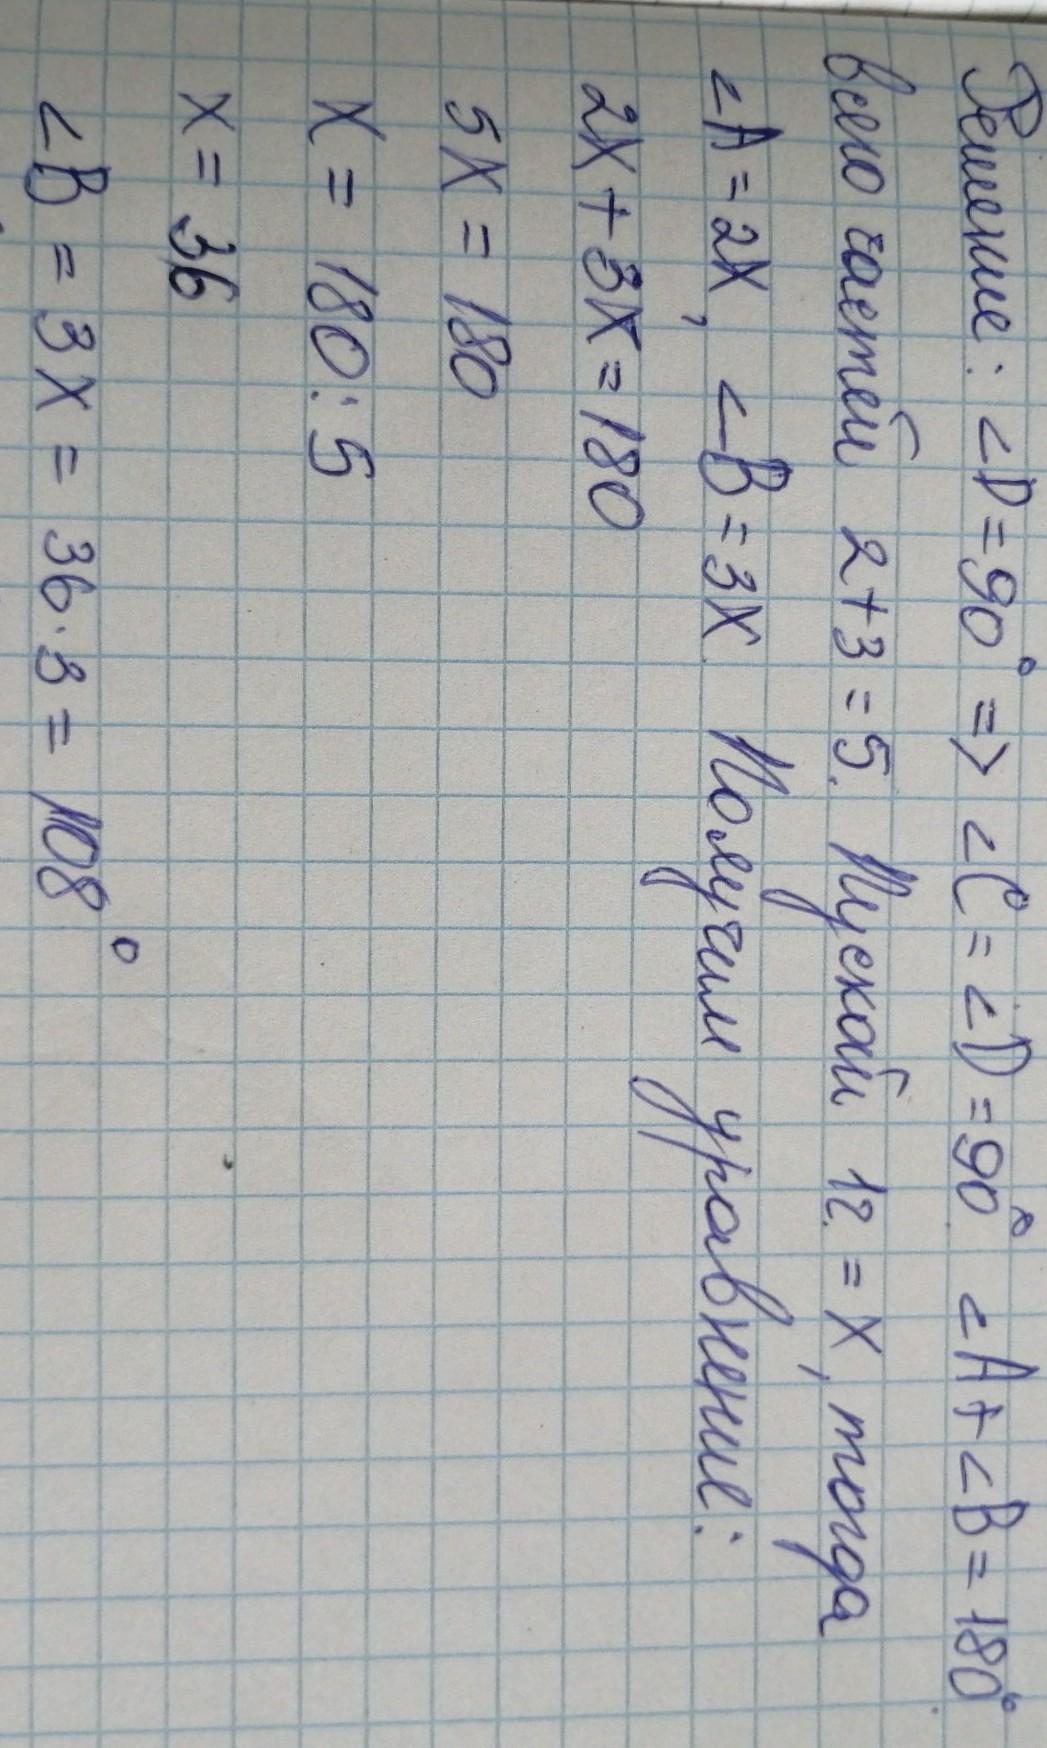 Решение: ∠D=90° => ∠C=∠D=90° ∠A+∠B=180°
всего частей 2+3=5. Пускай 1г.=X, тогда
∠A=2X, ∠B=3X. Получим уравнение:
2X+3X=180
5X=180
X=180:5
X=36
∠B=3X=36·3=108°